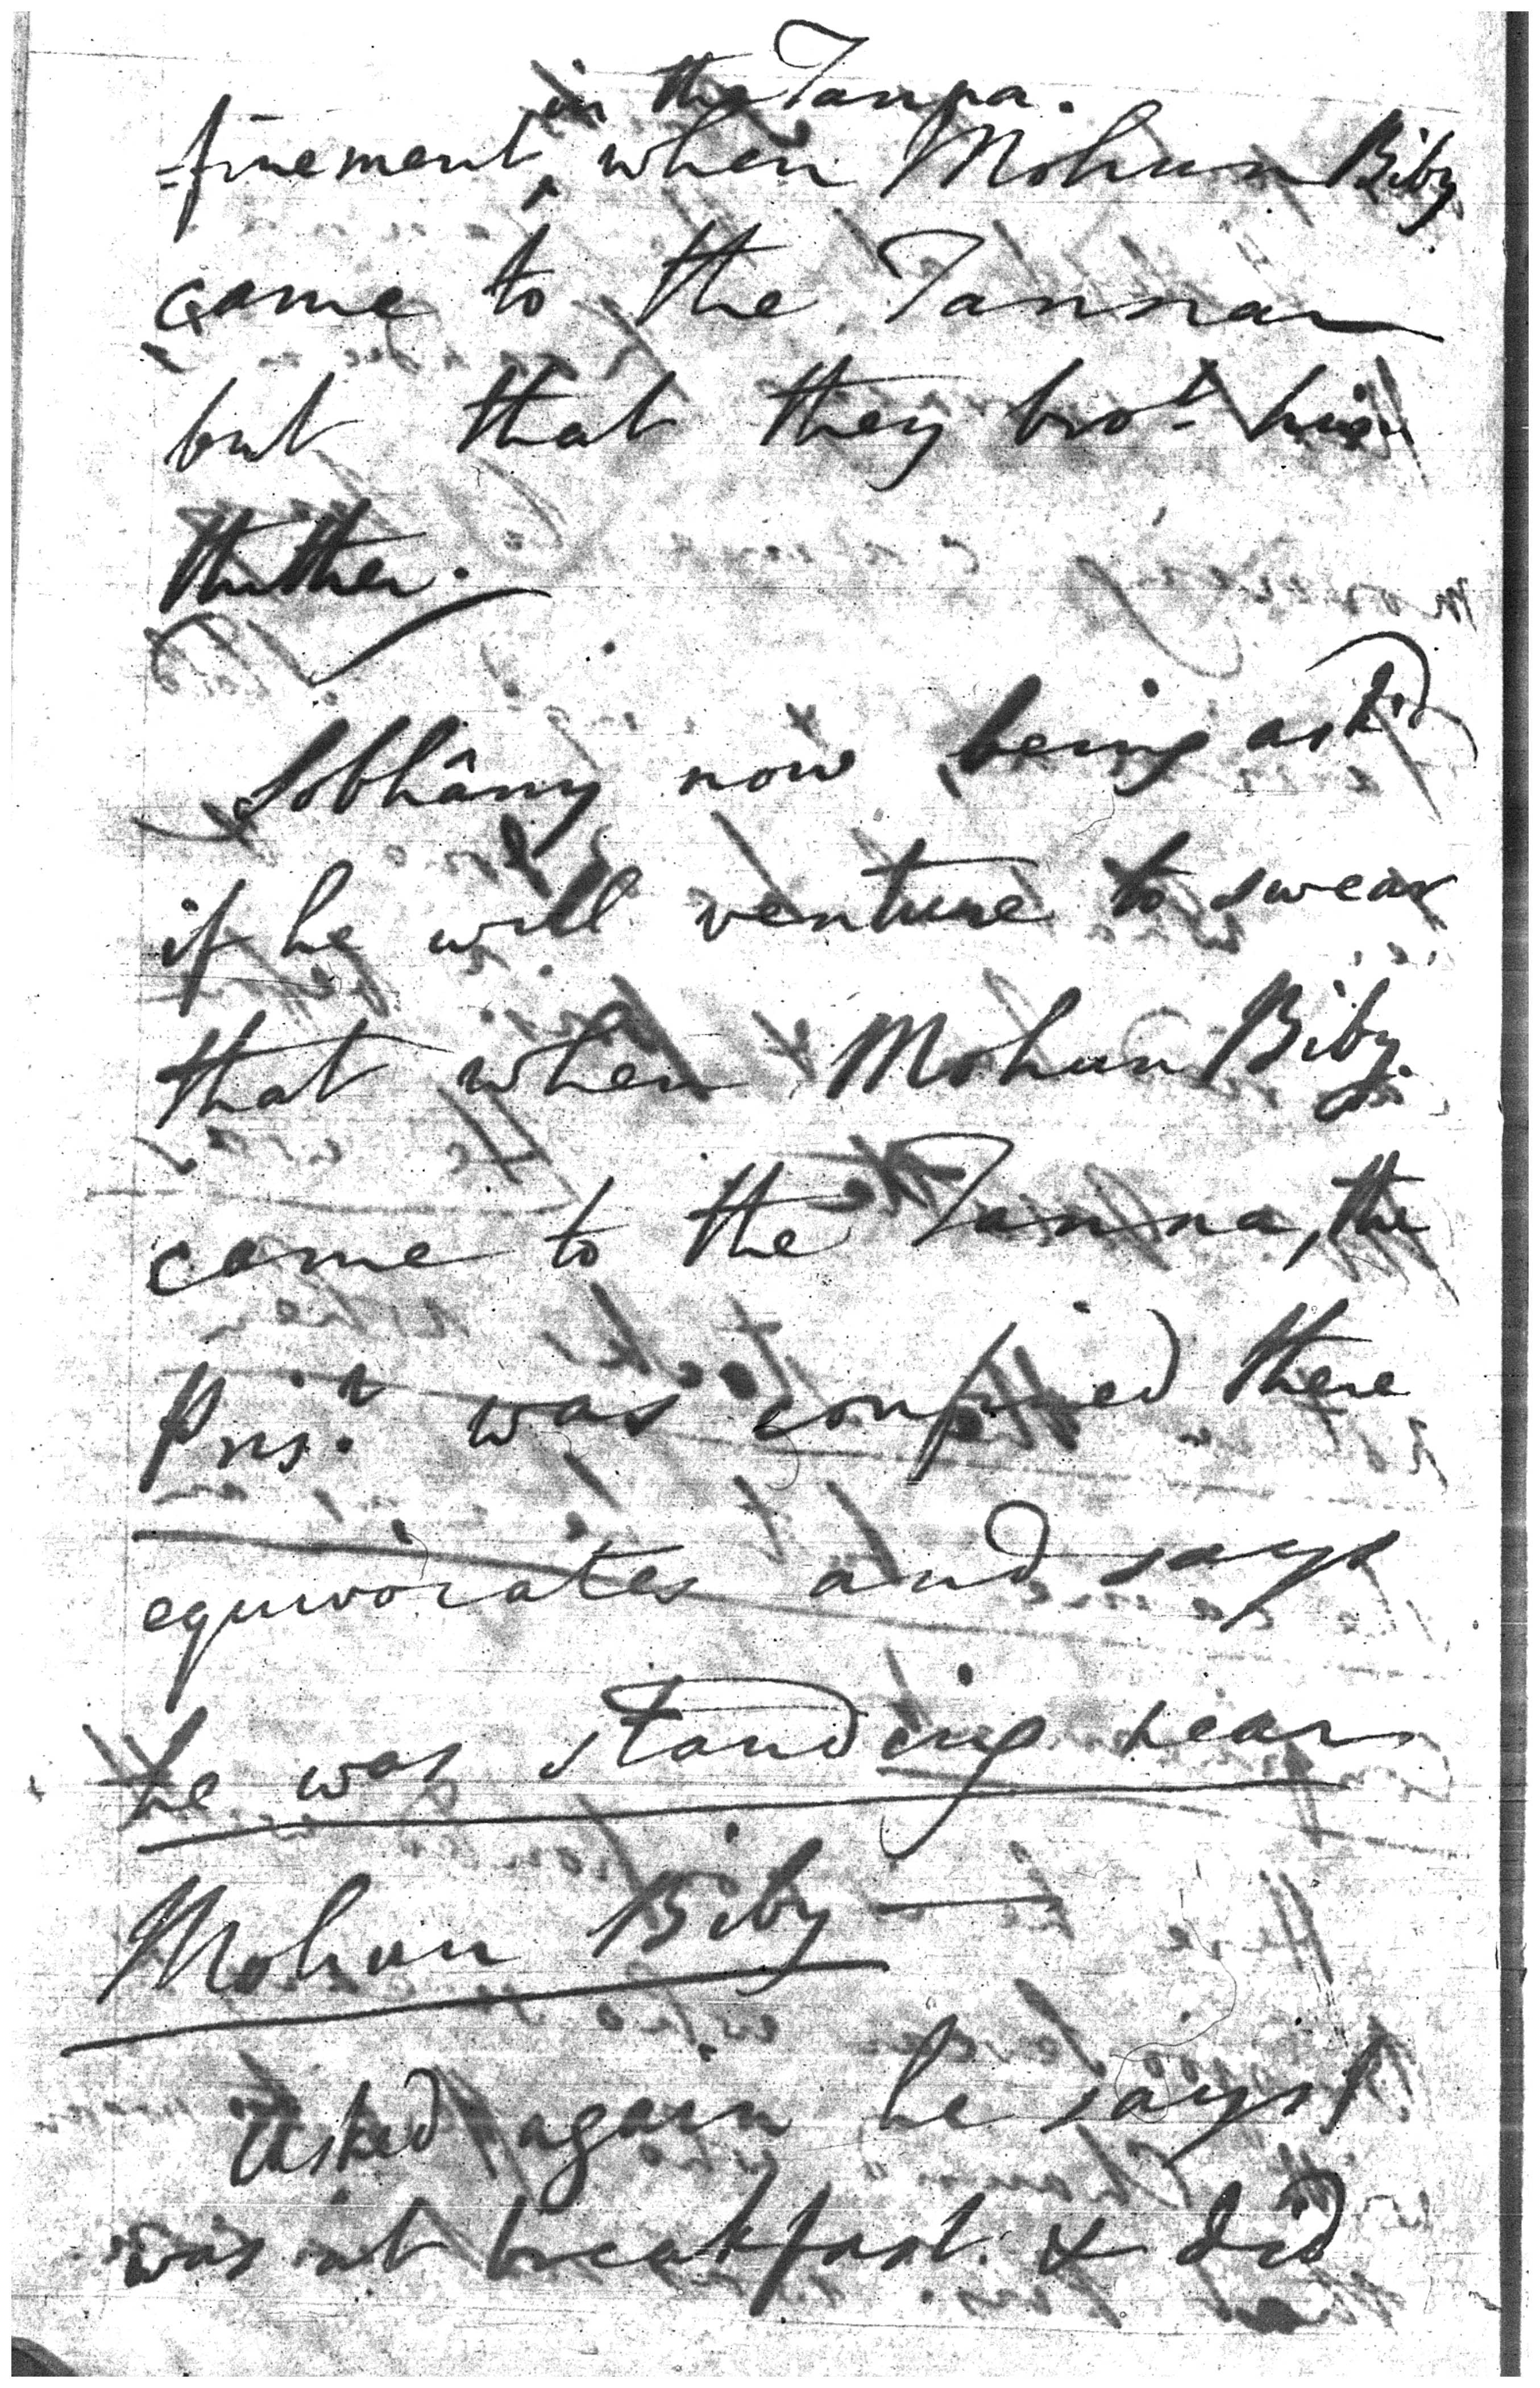 in the Tanna.
-finement, when Mohun Biby
came to the Tanna
but that they bro.t him
thither.
Sobhâny now being ask'd
if he will venture to swear
that when Mohun Biby
came to the Tanna, the
Pris.r was confined there
equivocates and says
he was standing near
Mohun Biby —
Asked again he says I
was at breakfast & did